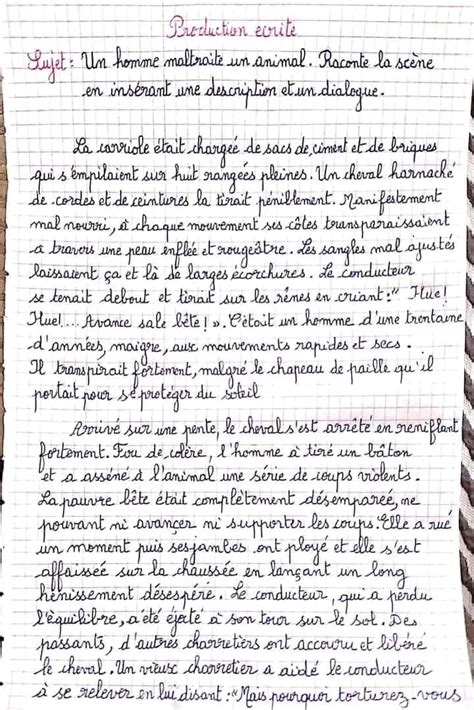 Production ecrite
Sujet : Un homme maltraite un animal. Raconte la scène
en insérant une description et un dialogue.
La carriole était chargée de sacs de, ciment et de briques
qui s'empilaient sur huit rangées pleines. Un cheval harnaché
de cordes et de ceintures la tirait péniblement. Manifestement
mal nourri, à chaque mouvement ses côtes transparaissaient
à travers une peau enflée et rougeâtre. Les sangles mal ajustés
laissaient ça et là de larges écorchures. Le conducteur
se tenait debout et tirait sur les rênes en criant : " Hue!
Hue!... Avance sale bête! ». C'était un homme d'une trentaine
d'années, maigre, aux mouvements rapides et secs.
Il transpirait fortement, malgré le chapeau de paille qu'il
portait pour se protéger du soleil
Arrivé sur une pente, le cheval s'est arrêté en reniflant
fortement. Fou de colère, l'homme a tiré un bâton
et a asséné à l'animal une série de coups violents.
La pauvre bête était complètement désemparée, ne
pouvant ni avancer ni supporter les coups. Elle a rué
un moment puis ses jambes ont ployé et elle s'est
affaissée sur la chaussée en lançant un long
hénissement désespéré. Le conducteur, qui a perdu
l'équilibre, a été éjecté à son tour sur le sol. Des
passants, d'autres charretiers ont accouru et libéré
le cheval. Un vieux charretier a aidé le conducteur
à se relever en lui disant : "Mais pourquoi torturez-vous